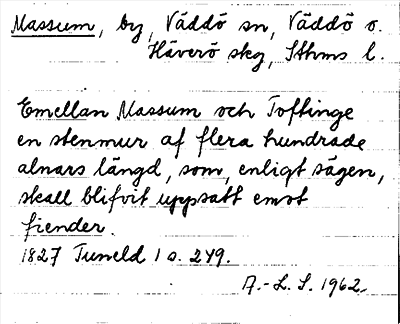 Massum, by, Väddö sn, Väddö o.
Häverö skg, Sthms l.
Emellan Massum och Toftinge
en stenmur af flera hundrade
alnars längd, som, enligt sägen,
skall blifvit uppsatt emot
fiender.
1827 Tuneld 1 s. 249.
A.-L. S. 1962